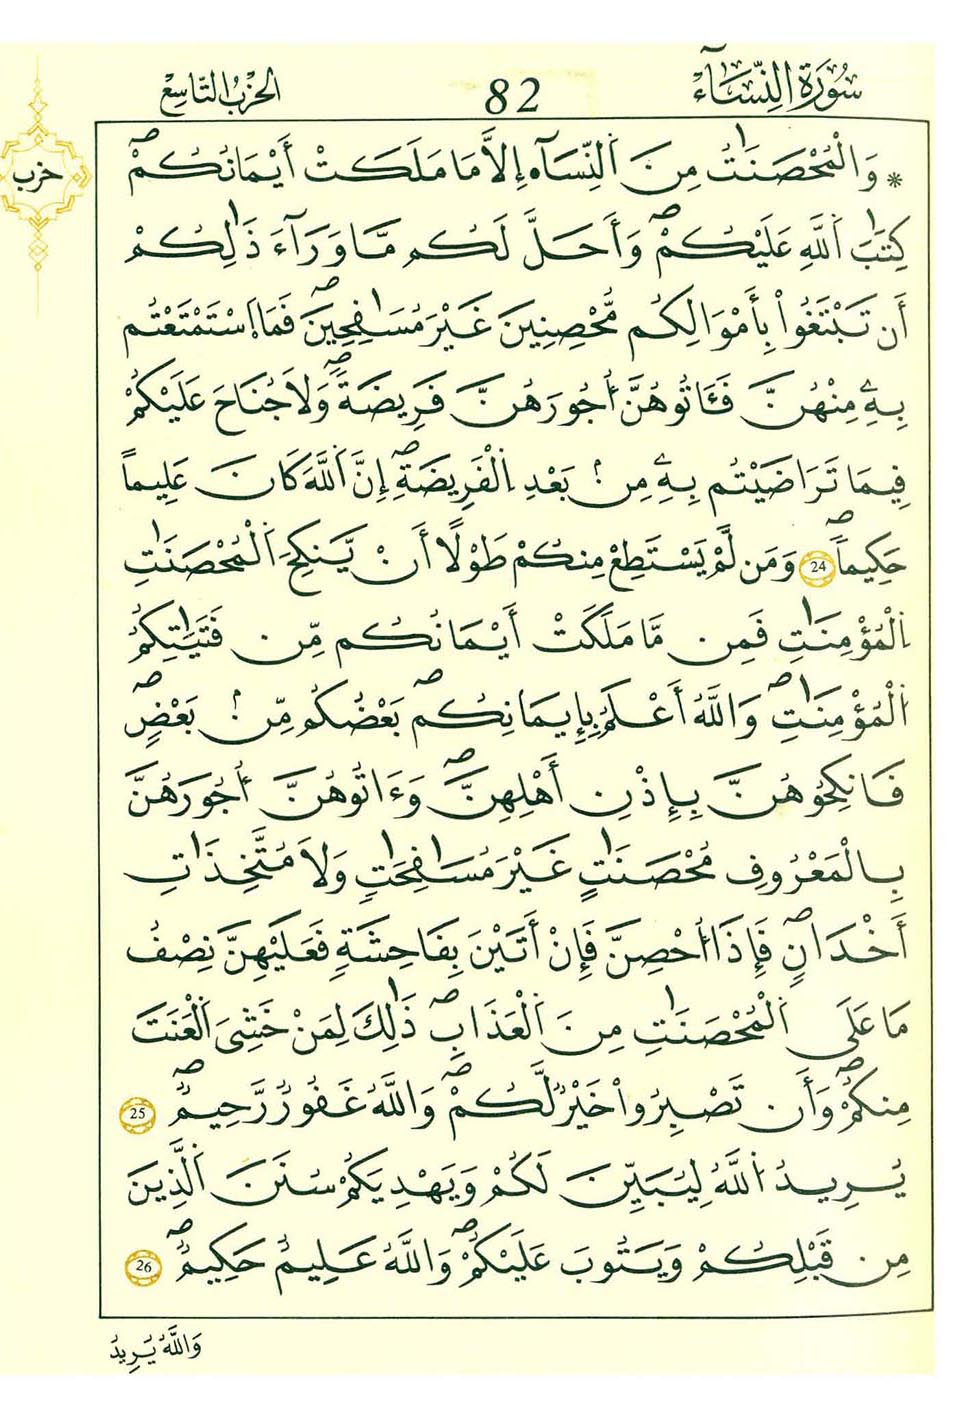 سُورَةُ النِّسَآءِ 82 الحِزْبُ التَّاسِعُ
حزب
* وَالْمُحْصَنَٰتُ مِنَ اَ۬لنِّسَآءِ اِلَّا مَا مَلَكَتْ أَيْمَانُكُمْۖ
كِتَٰبَ اَ۬للَّهِ عَلَيْكُمْۖ وَأَحَلَّ لَكُم مَّا وَرَآءَ ذَٰلِكُمْ
أَن تَبْتَغُواْ بِأَمْوَالِكُم مُّحْصِنِينَ غَيْرَ مُسَٰفِحِينَۖ فَمَا اَ۪سْتَمْتَعْتُم
بِهِۦ مِنْهُنَّ فَـَٔاتُوهُنَّ أُجُورَهُنَّ فَرِيضَةٗۖ وَلَا جُنَاحَ عَلَيْكُمْ
فِيمَا تَرَاضَيْتُم بِهِۦ مِنۢ بَعْدِ اِ۬لْفَرِيضَةِۖ إِنَّ اَ۬للَّهَ كَانَ عَلِيماً
حَكِيماٗۖ 24 وَمَن لَّمْ يَسْتَطِعْ مِنكُمْ طَوْلًا أَنْ يَّنكِحَ اَ۬لْمُحْصَنَٰتِ
اِ۬لْمُؤْمِنَٰتِ فَمِن مَّا مَلَكَتْ أَيْمَانُكُم مِّن فَتَيَٰتِكُمُ
اُ۬لْمُؤْمِنَٰتِۖ وَاللَّهُ أَعْلَمُ بِإِيمَانِكُمۖ بَعْضُكُم مِّنۢ بَعْضٖۖ
فَانكِحُوهُنَّ بِإِذْنِ أَهْلِهِنَّۖ وَءَاتُوهُنَّ أُجُورَهُنَّ
بِالْمَعْرُوفِ مُحْصَنَٰتٍ غَيْرَ مُسَٰفِحَٰتٖ وَلَا مُتَّخِذَاتِ
أَخْدَانٖۖ فَإِذَا أُحْصِنَّ فَإِنْ أَتَيْنَ بِفَاحِشَةٖ فَعَلَيْهِنَّ نِصْفُ
مَا عَلَى اَ۬لْمُحْصَنَٰتِ مِنَ اَ۬لْعَذَابِۖ ذَٰلِكَ لِمَنْ خَشِيَ اَ۬لْعَنَتَ
مِنكُمْۖ وَأَن تَصْبِرُواْ خَيْرٞ لَّكُمْۖ وَاللَّهُ غَفُورٞ رَّحِيمٞۖ 25
يُرِيدُ اُ۬للَّهُ لِيُبَيِّنَ لَكُمْ وَيَهْدِيَكُمْ سُنَنَ اَ۬لَّذِينَ
مِن قَبْلِكُمْ وَيَتُوبَ عَلَيْكُمْۖ وَاللَّهُ عَلِيمٌ حَكِيمٞۖ 26
وَاللَّهُ يُرِيدُ